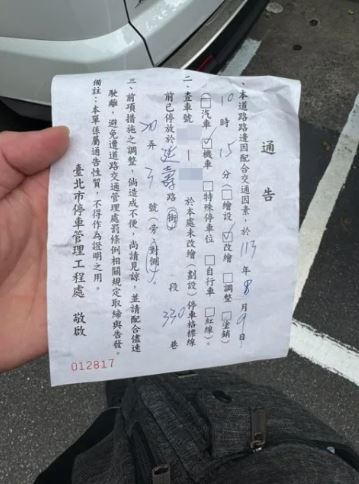 通告
一、本道路路邊因配合交通因素，於 113 年 8 月 9 日
10 時 15 分 □繪設 ☑改繪 □調整 □塗銷
□汽車 ☑機車 □特殊停車位 □自行車 □紅線）。
二、查車號 於本處未改繪（劃設）停車格標線
前已停放於 延壽 路（街） 段 330 巷
20 弄 3 號（旁、對側）。
三、前項措施之調整，倘造成不便，尚請見諒，並請配合儘速
駛離，避免遭道路交通管理處罰條例相關規定取締與告發。
備註：本單係屬通告性質，不得作為證明之用。
臺北市停車管理工程處 敬啟
012817